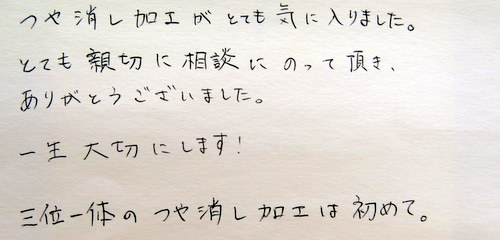 つや消し加工がとても気に入りました。
とても親切に相談にのって頂き、
ありがとうございました。
一生大切にします!
三位一体のつや消し加工は初めて。